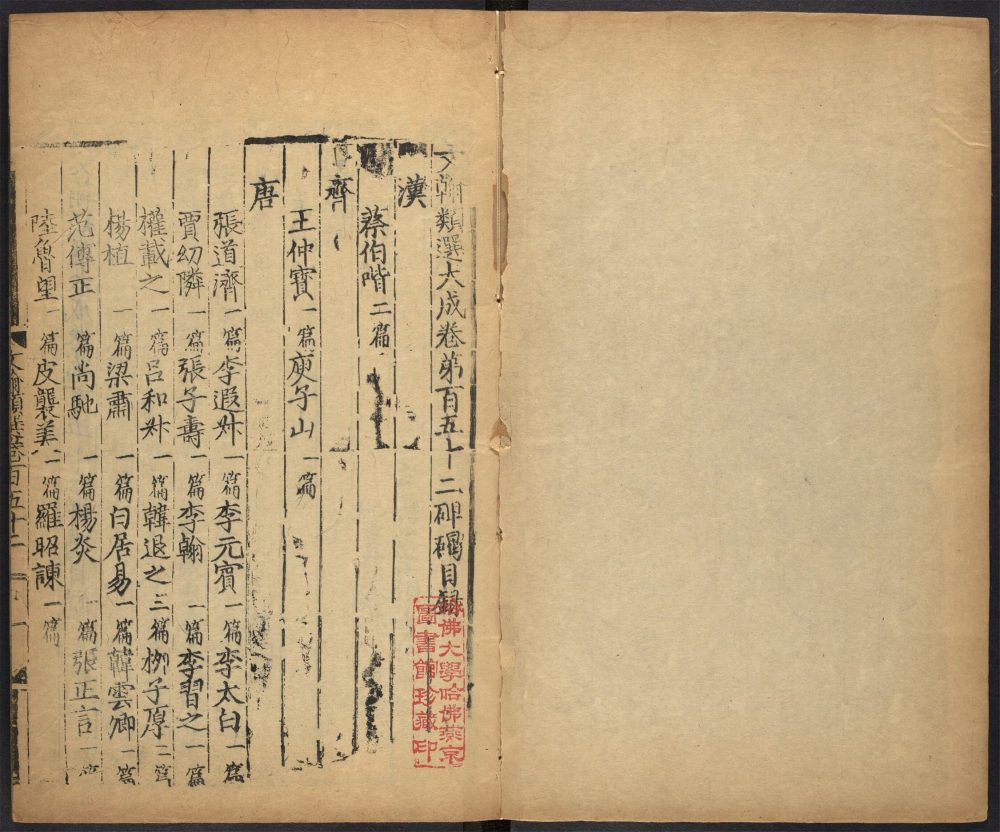 文翰類選大成卷第百五十二碑碣目錄
漢
蔡伯喈二篇
齊
王仲寶一篇庾子山一篇
唐
張道濟一篇李遐叔一篇李元賓一篇李太白一篇
賈幼隣一篇張子壽一篇李翰一篇李習之一篇
權載之一篇呂和叔一篇韓退之三篇柳子厚二篇
楊植一篇梁肅一篇白居易一篇韓雲卿一篇
范傳正一篇尚馳一篇楊炎一篇張正言一篇
陸魯望一篇皮襲美二篇羅昭諫一篇
文翰類選卷一百五十二
哈佛大學哈佛燕京
圖書館珍藏印